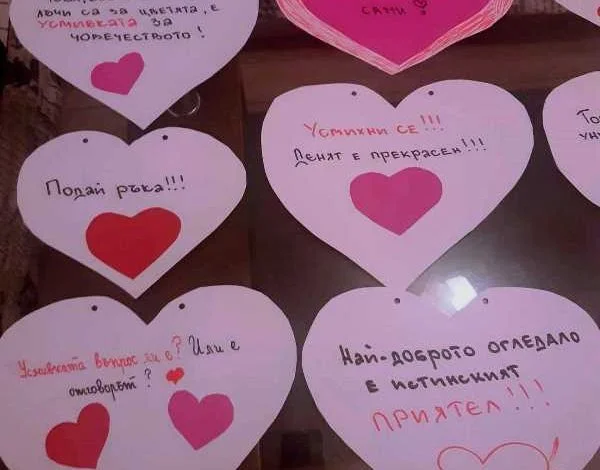 лъчи са за цветята, е
УСМИВКАТА ЗА
ЧОВЕЧЕСТВОТО!
САМИ!
Усмихни се!!!
Денят е прекрасен!!!
Подай ръка!!!
Усмивката въпрос ли е? Или е
отговорът?
Най-доброто огледало
е истинският
ПРИЯТЕЛ!!!